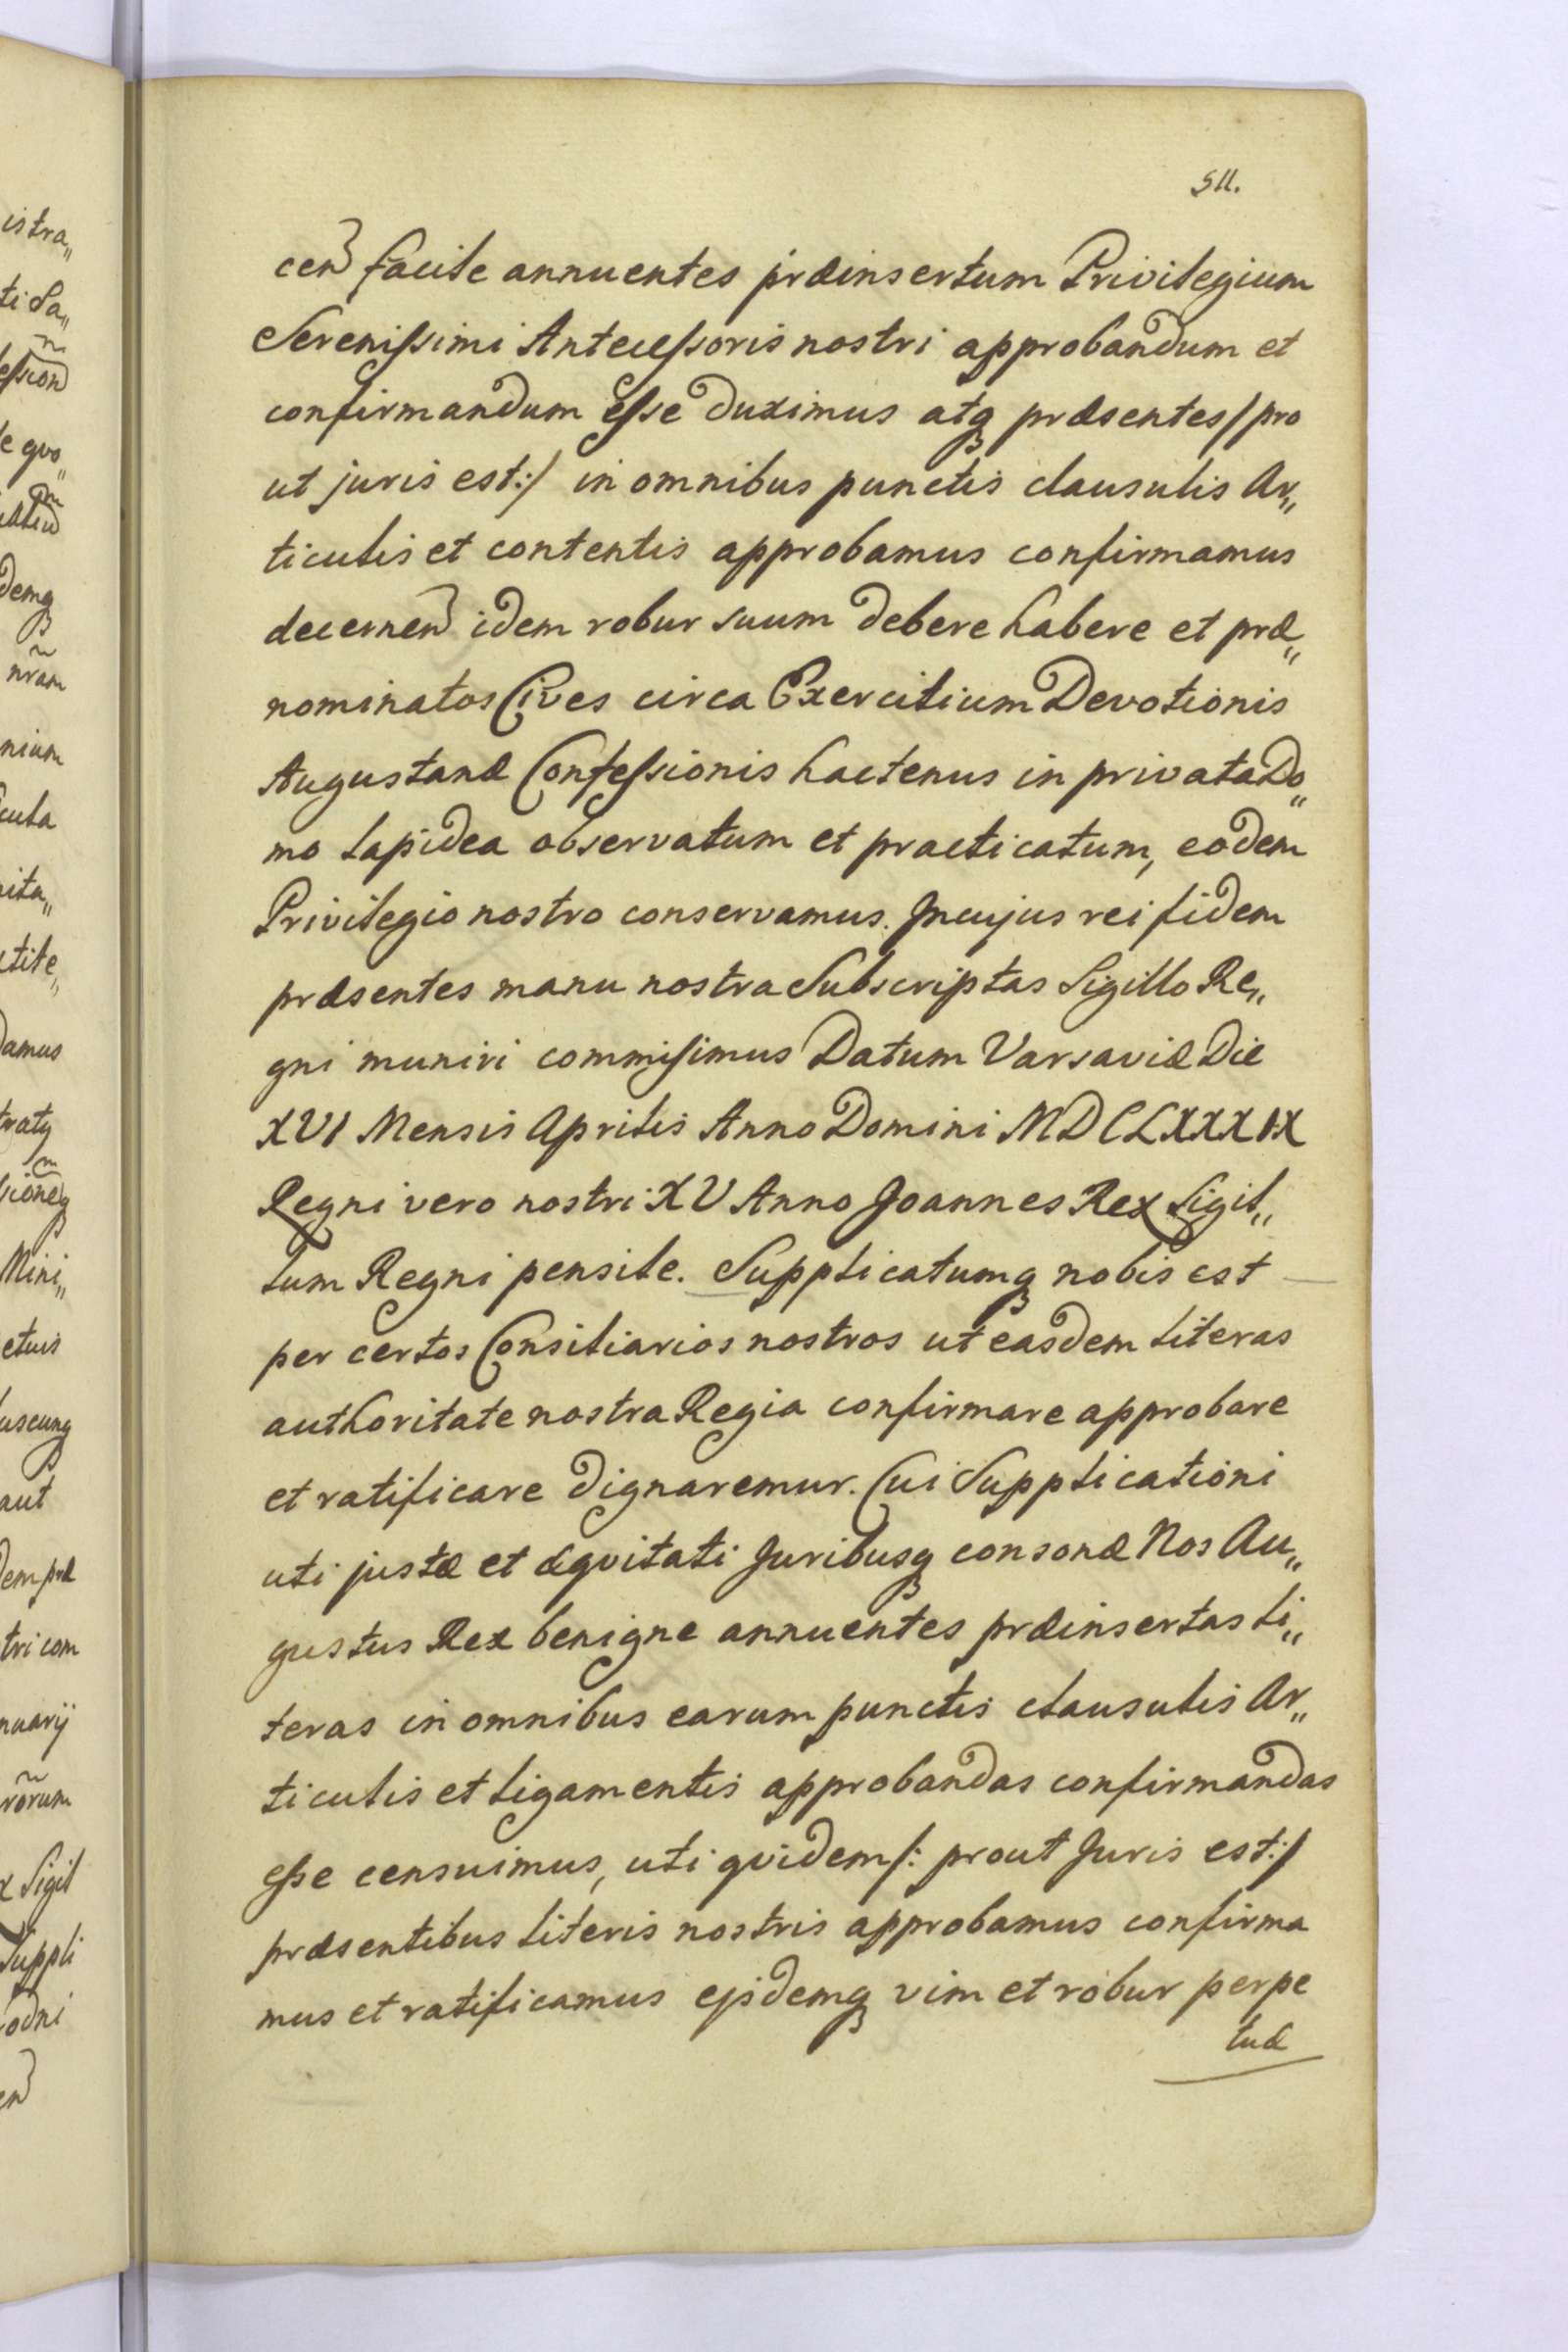 511.
cen facile annuentes præinsertum Privilegium
Serenissimi Antecessoris nostri approbandum et
confirmandum esse duximus atq præsentes / pro
ut juris est :/ in omnibus punctis clausulis Ar„
ticulis et contentis approbamus confirmamus
decernen idem robur suum debere habere et præ„
nominatos Cives circa Exercitium Devotionis
Augustanæ Confessionis hactenus in privata Do„
mo lapidea observatum et practicatum, eodem
Privilegio nostro conservamus. In cujus rei fidem
præsentes manu nostra Subscriptas Sigillo Re„
gni muniri commisimus Datum Varsaviæ Die
XVI Mensis Aprilis Anno Domini MDCLXXXIX
Regni vero nostri XV Anno Joannes Rex Sigil„
lum Regni pensile. Supplicatumq nobis est —
per certos Consiliarios nostros ut easdem literas
authoritate nostra Regia confirmare approbare
et ratificare dignaremur. Cui Supplicationi
uti justæ et æquitati Juribusq consonæ Nos Au„
gustus Rex benigne annuentes præinsertas li„
teras in omnibus earum punctis clausulis Ar„
ticulis et ligamentis approbandas confirmandas
esse censuimus, uti quidem /: prout Juris est :/
præsentibus literis nostris approbamus confirma
mus et ratificamus ejsdemq vim et robur perpe
tuæ
istra„
ti Sa„
ession
e quo„
demq
nram
nium
cula
nita„
ctile„
damus
traty
sioneq
Mini„
etuis
uscunq
aut
dem præ
tri com
nuarij
rorum
x Sigil
Suppli
odni
en